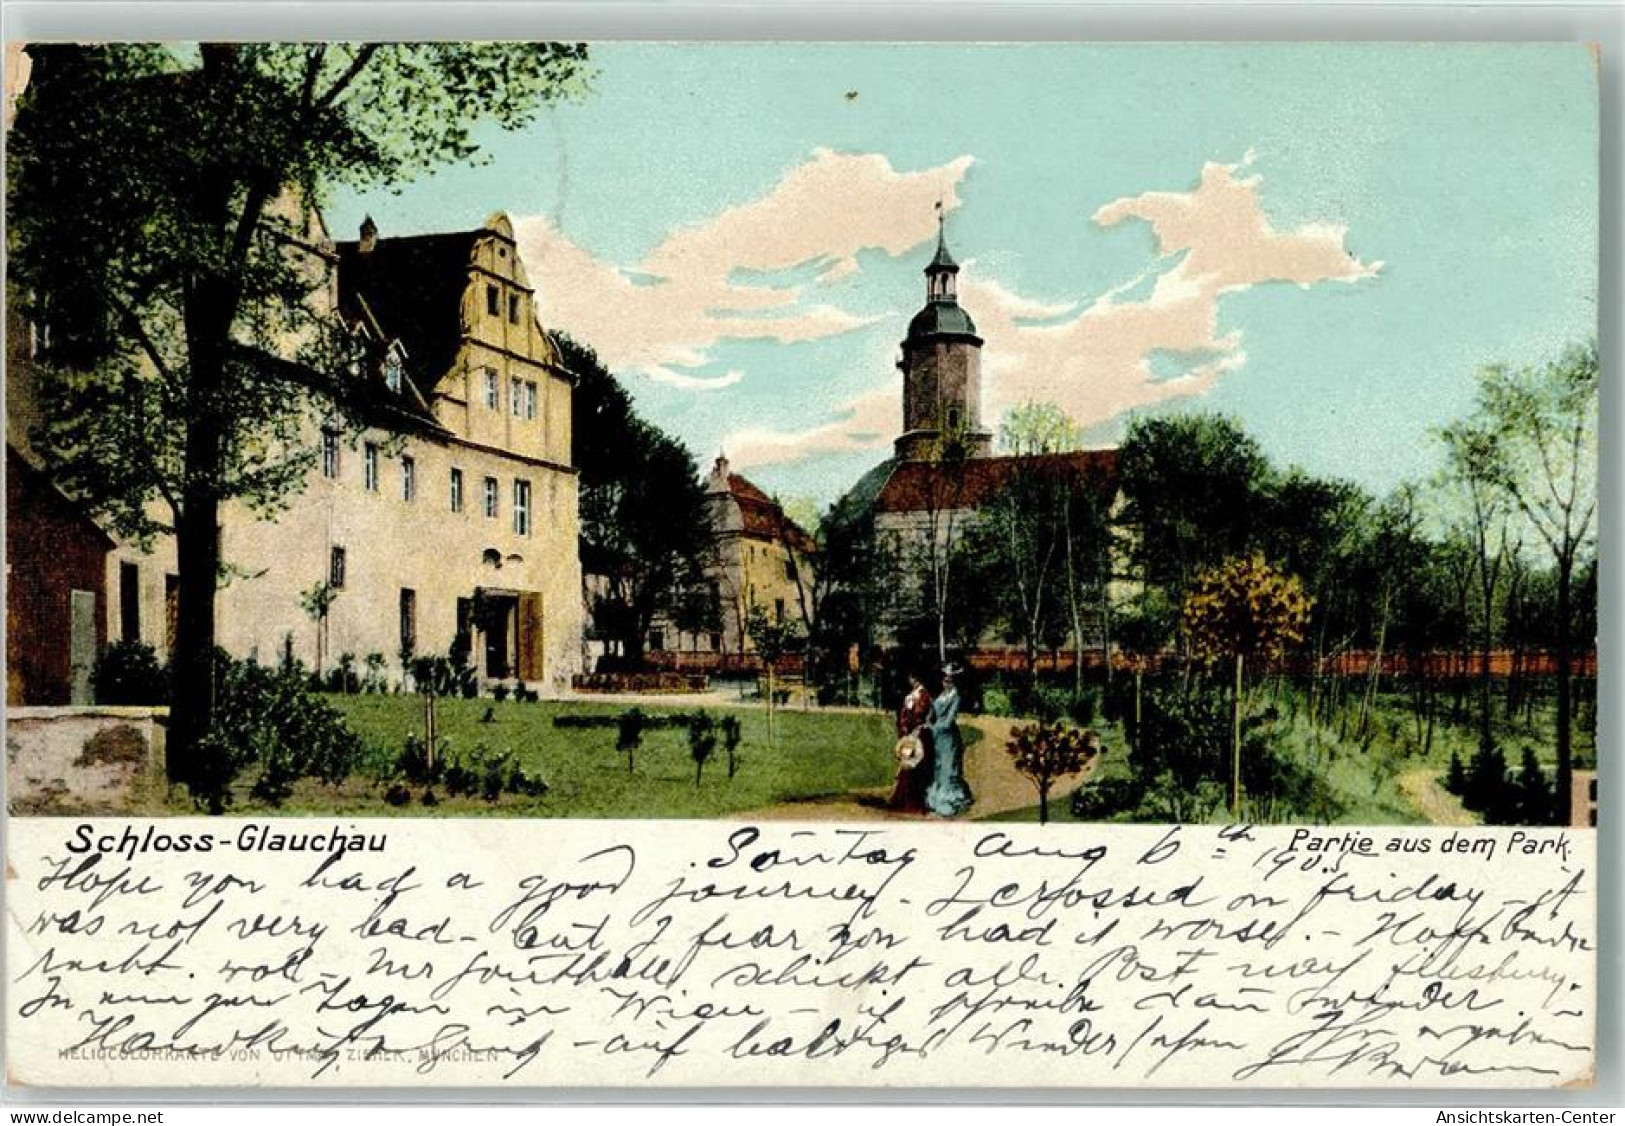 Schloss-Glauchau
Partie aus dem Park.
Sontag Aug 6th 1905
Hope you had a good journey. I crossed on friday - it
was not very bad - but I fear you had it worse. - Hoffe
recht wohl - Mr Southall schickt alle Post nach
In ein paar Tagen in Wien - ich schreibe dan wieder.
Handkuss & Gruss - auf baldiges Wiedersehen Ihr ergebener
HELIOCOLORKARTE VON OTTMAR ZIEHER, MÜNCHEN
www.delcampe.net
Ansichtskarten-Center